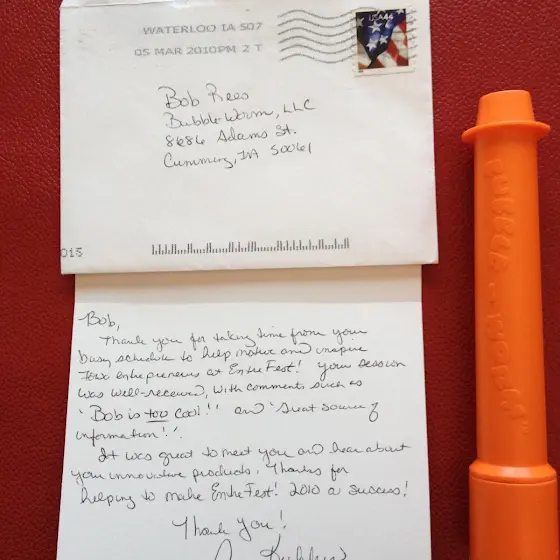 WATERLOO IA 507
05 MAR 2010PM 2 T
USA44
Bob Rees
BubbleWorm, LLC
8686 Adams St.
Cumming, IA 50061
015
Bob,
Thank you for taking time from your
busy schedule to help motive and inspire
Iowa entrepreneurs at EntreFest! Your session
was well-received, with comments such as
"Bob is too cool!" and "Great source of
information!".
It was great to meet you and hear about
your innovative products. Thanks for
helping to make EntreFest! 2010 a success!
Thank you!